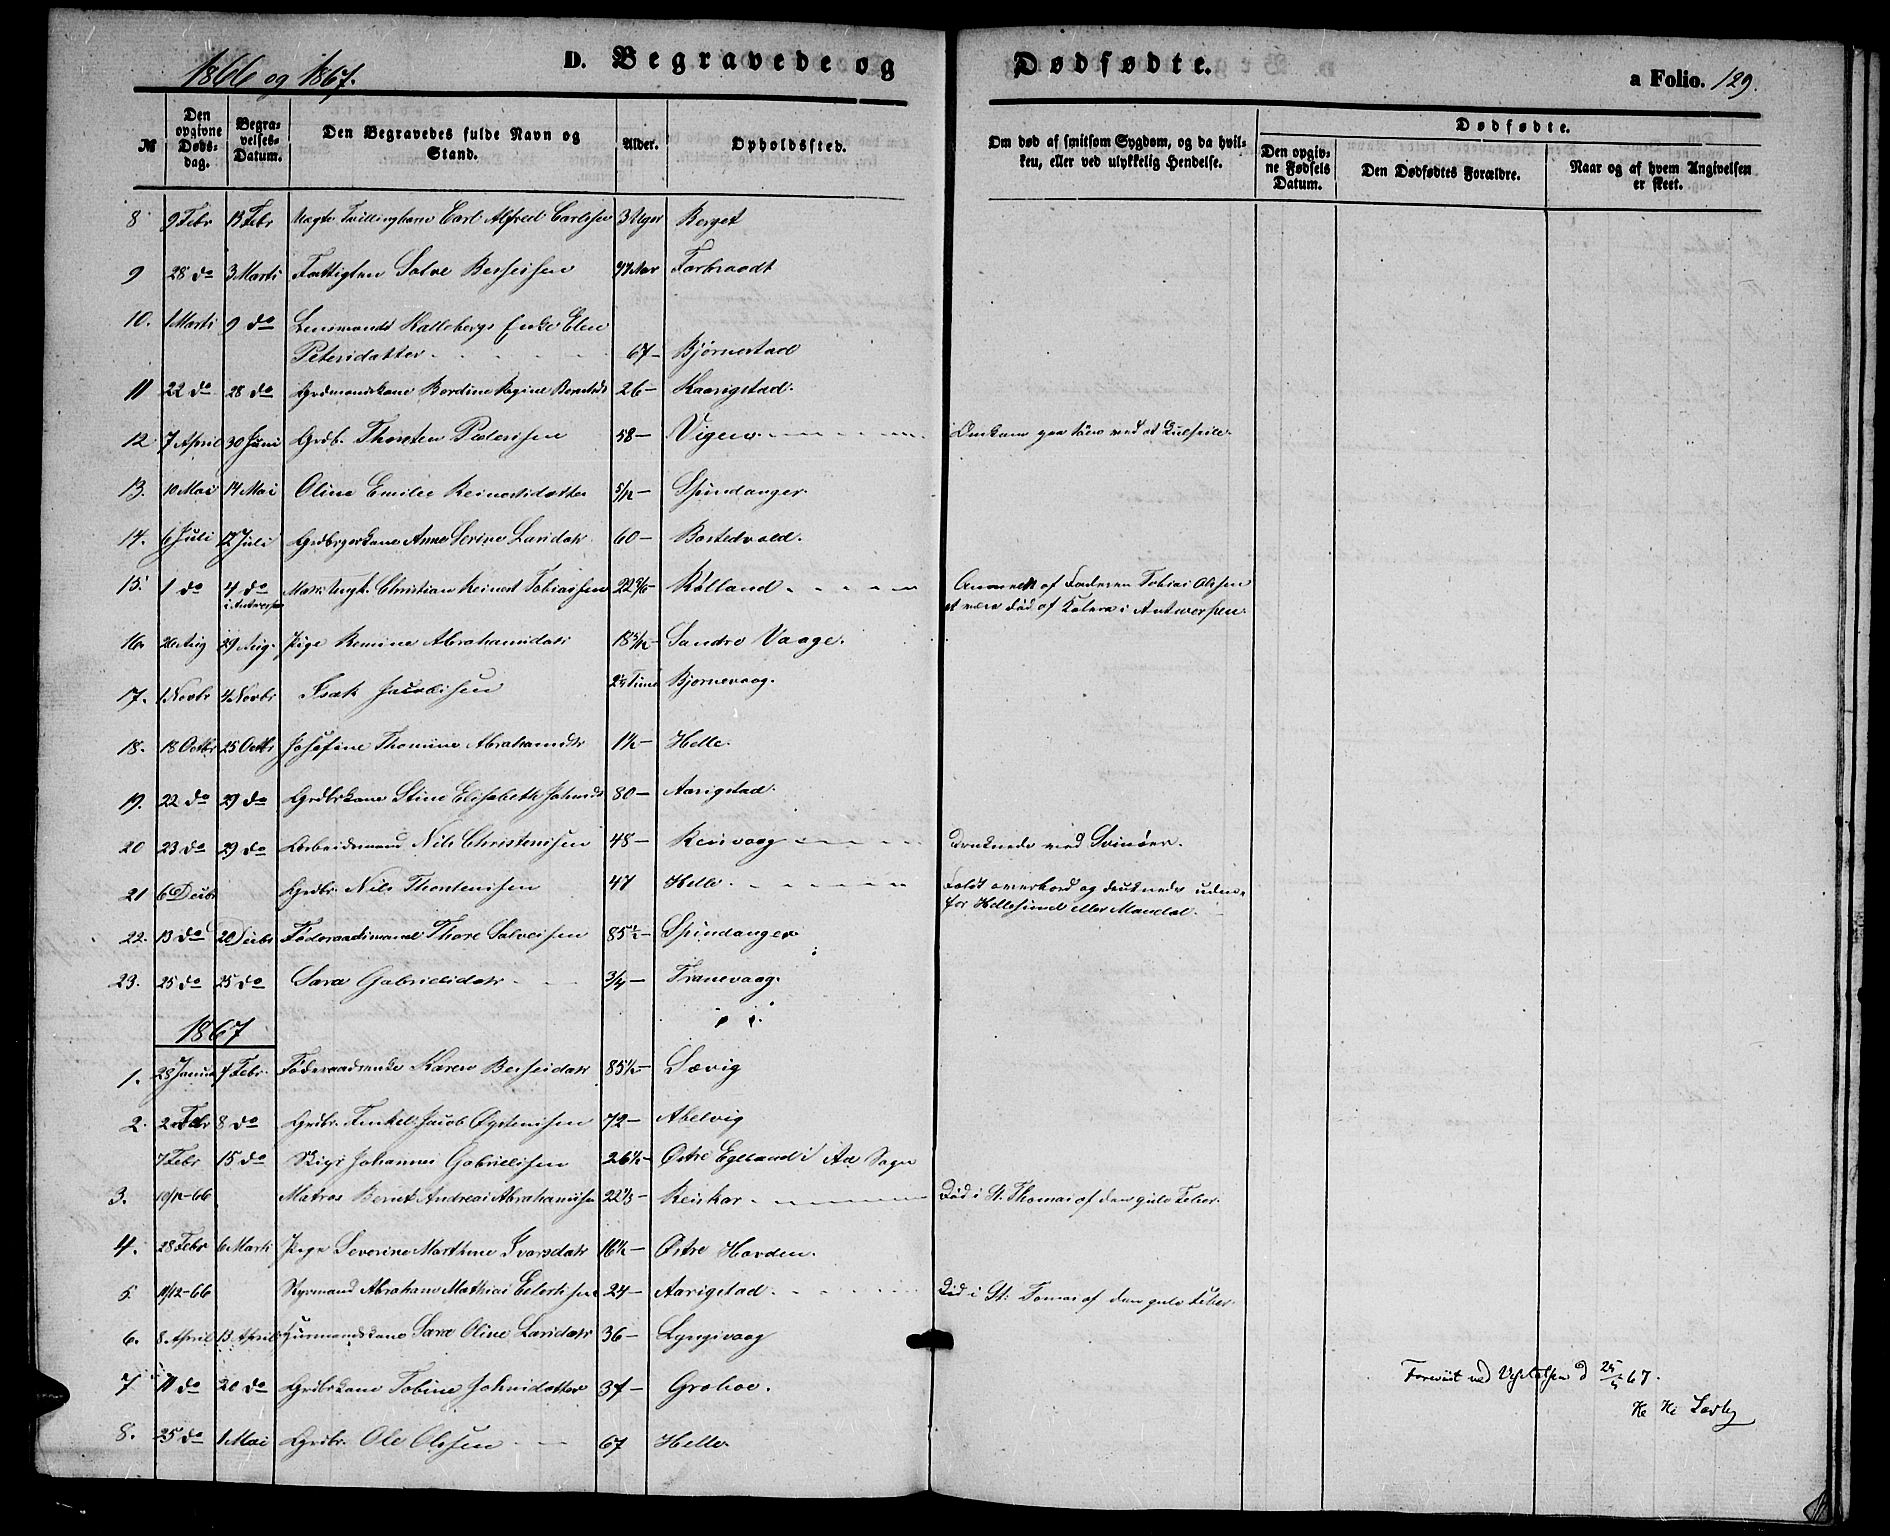 1866 og 1867.
D. Begravede og Dødfødte.
a Folio. 129.
№
Den opgivne Døds-dag.
Begra-velses-Datum.
Den Begravedes fulde Navn og Stand.
Alder.
Opholdssted.
Om død af smitsom Sygdom, og da hvil-ken, eller ved ulykkelig Hendelse.
Dødfødte.
Den opgiv-ne Fødsels Datum.
Den Dødfødtes Forældre.
Naar og af hvem Angivelsen er skeet.
8 9 Febr 13 Febr Tvillingbarn Carl Alfred Carlsen 3 Uger Berget
9 28 do 3 Marti Fattiglem Salve Berseisen 77 Aar
10. 1 Marti 9 do Lensmands Kallebergs Enke Elen
Petersdatter 67 - Bjørnestad
11 22 do 28 do Grdmandskone Berdine Regine 26 - Kaarigstad.
12 7 April 30 Juni Grdb. Thorsten Pedersen 58 - Omkom paa Søen ved at Kulseile.
13. 10 Mai 14 Mai Oline Emilie Reinertsdatter 5/12 - Spindanger.
14. 6 Juli 12 Juli Anne Serine Larsdatr 60 - Bastedvold.
15. 1 do 4 do Christian Reinert Tobiassen 22 - Rølland Anmeldt af Faderen Tobias Olsen
i Antwerpen at være død af Kolera i Antwerpen.
16. 26 Aug 29 Aug. Pige Abrahamsdatr 18 - Søndre Vaage.
17. 1 Novbr 4 Novbr Isak Jacobsen Time Bjørnevaag.
18. 18 Octbr 25 Octbr Josefine Thomine Abrahamsdtr 1½ - Helle.
19. 22 do 29 do Grdbrkone Stine Elisabeth 80 - Aarigstad.
20 23 do 29 do Arbeidsmand Nils Christensen 48 - Reisvaag Druknede ved Svinøer.
21 6 Decbr Grdbr. Nils Thorstensen 47 Helle. Faldt overbord og druknede uden-
for Hellesund eller Mandal.
22. 13 do 20 Decbr Føderaadsmand Thore Salvesen 85½ - Spindanger
23. 25 do 25 do Sara Gabrielsdatr 3/4 - Tranevaag.
1867
1. 28 Januar Febr. Føderaadsenke Karen Berseidatr 85½ - Sævig
2. 2 Febr 8 do Grdbr. Tenkel Jacob Øystensen 72 - Ahelvig
7 Febr 15 do Johannes Gabrielsen 26½ - Østre Egeland i Aa Sogn
3. -66 Matros Bernt Andreas Abrahamsen 22 - Død i St. Thomas af den gule Feber.
4. 28 Febr 6 Marti Pige Severine Marthine Ivarsdatr 16½ - Østre Haarden.
5. 11/12-66 Styrmand Abraham Mathias Eilertsen 24 - Aarigstad. Død i St. Tomas af den gule Feber.
6. 8 April 13 April Sara Oline Larsdatr 36 - Lyngsvaag
7 11 do 20 do Grdbrkone Tobine Johnsdatter 37 -
Foreviist ved Visitatsen d 67.
8. 25 do 1 Mai Grdbr. Ole Olsen 67 Helle